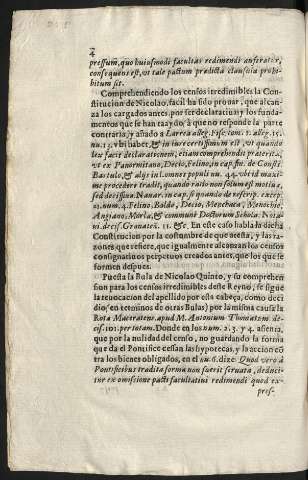 4
pressum, quo huiusmodi facultas redimendi auferatur,
consequens est, ut tale pactum prædicta clausula prohi-
bitum sit.
Comprehendiendo los censos irredimibles la Cons-
titucion de Nicolao, facil ha sido prouar, que alcan-
za los cargados antes, por ser declaratiua; y los funda-
mentos que se han traydo; à que no responde la parte
contraria; y añado a Larrea alleg. Fisc. tom. 1. alleg. 15.
nu. 13. vbi habet, & in iure certissimum est, vt quando
lex facit declarationem, etiam comprehendit præterita,
vt ex Panormitano, Decio, Felino, in cap. fin. de Consti.
Bartulo, & alijs in l. omnes populi nu. 44. vbi id maxi-
mè procedere tradit, quando ratio non solum est motiua,
sed decisiua. Nauar. in cap. si quando de rescrip. except.
nu. 4. Felino, Baldo, Decio, Menchaca, Menochio,
Angiano, Morla, & commune Doctorum Schola. Nota-
ui, decis. Granaten. 11. &c. En este caso habla la dicha
Constitucion por la costumbre de que acosta, y las ra-
zones que refiere, que igualmente alcanzan los censos
consignatiuos perpetuos creados antes, que los que se
formen despues.
Puesta la Bula de Nicolao Quinto, y su comprehen-
sion para los censos irredimibles deste Reyno, se sigue
la reuocacion del apellido por esta cabeça, como deci-
diò (en terminos de otras Bulas) por la misma causa la
Rota Maceratens. apud M. Antonium Thomatem de-
cis. 101. per totam. Donde en los num. 2. 3. y 4. assienta,
que por la nulidad del censo, no guardando la forma
que da el Pontifice cessan las hypotecas, y la accion co
tra los bienes obligados, en el nu. 6. dize: Quod vero à
Pontificibus tradita forma non fuerit seruata, deduci-
tur ex omissione pacti facultatiui redimendi quod ex-
pres-